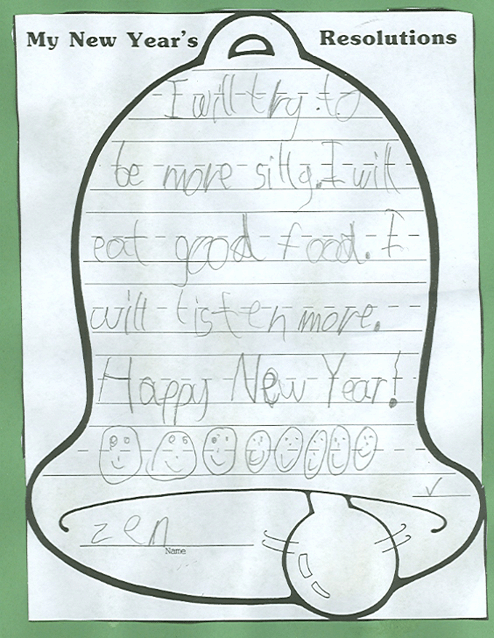 My New Year's Resolutions
I will try to
be more silly. I will
eat good food. I
will listen more.
Happy New Year!
zen
Name